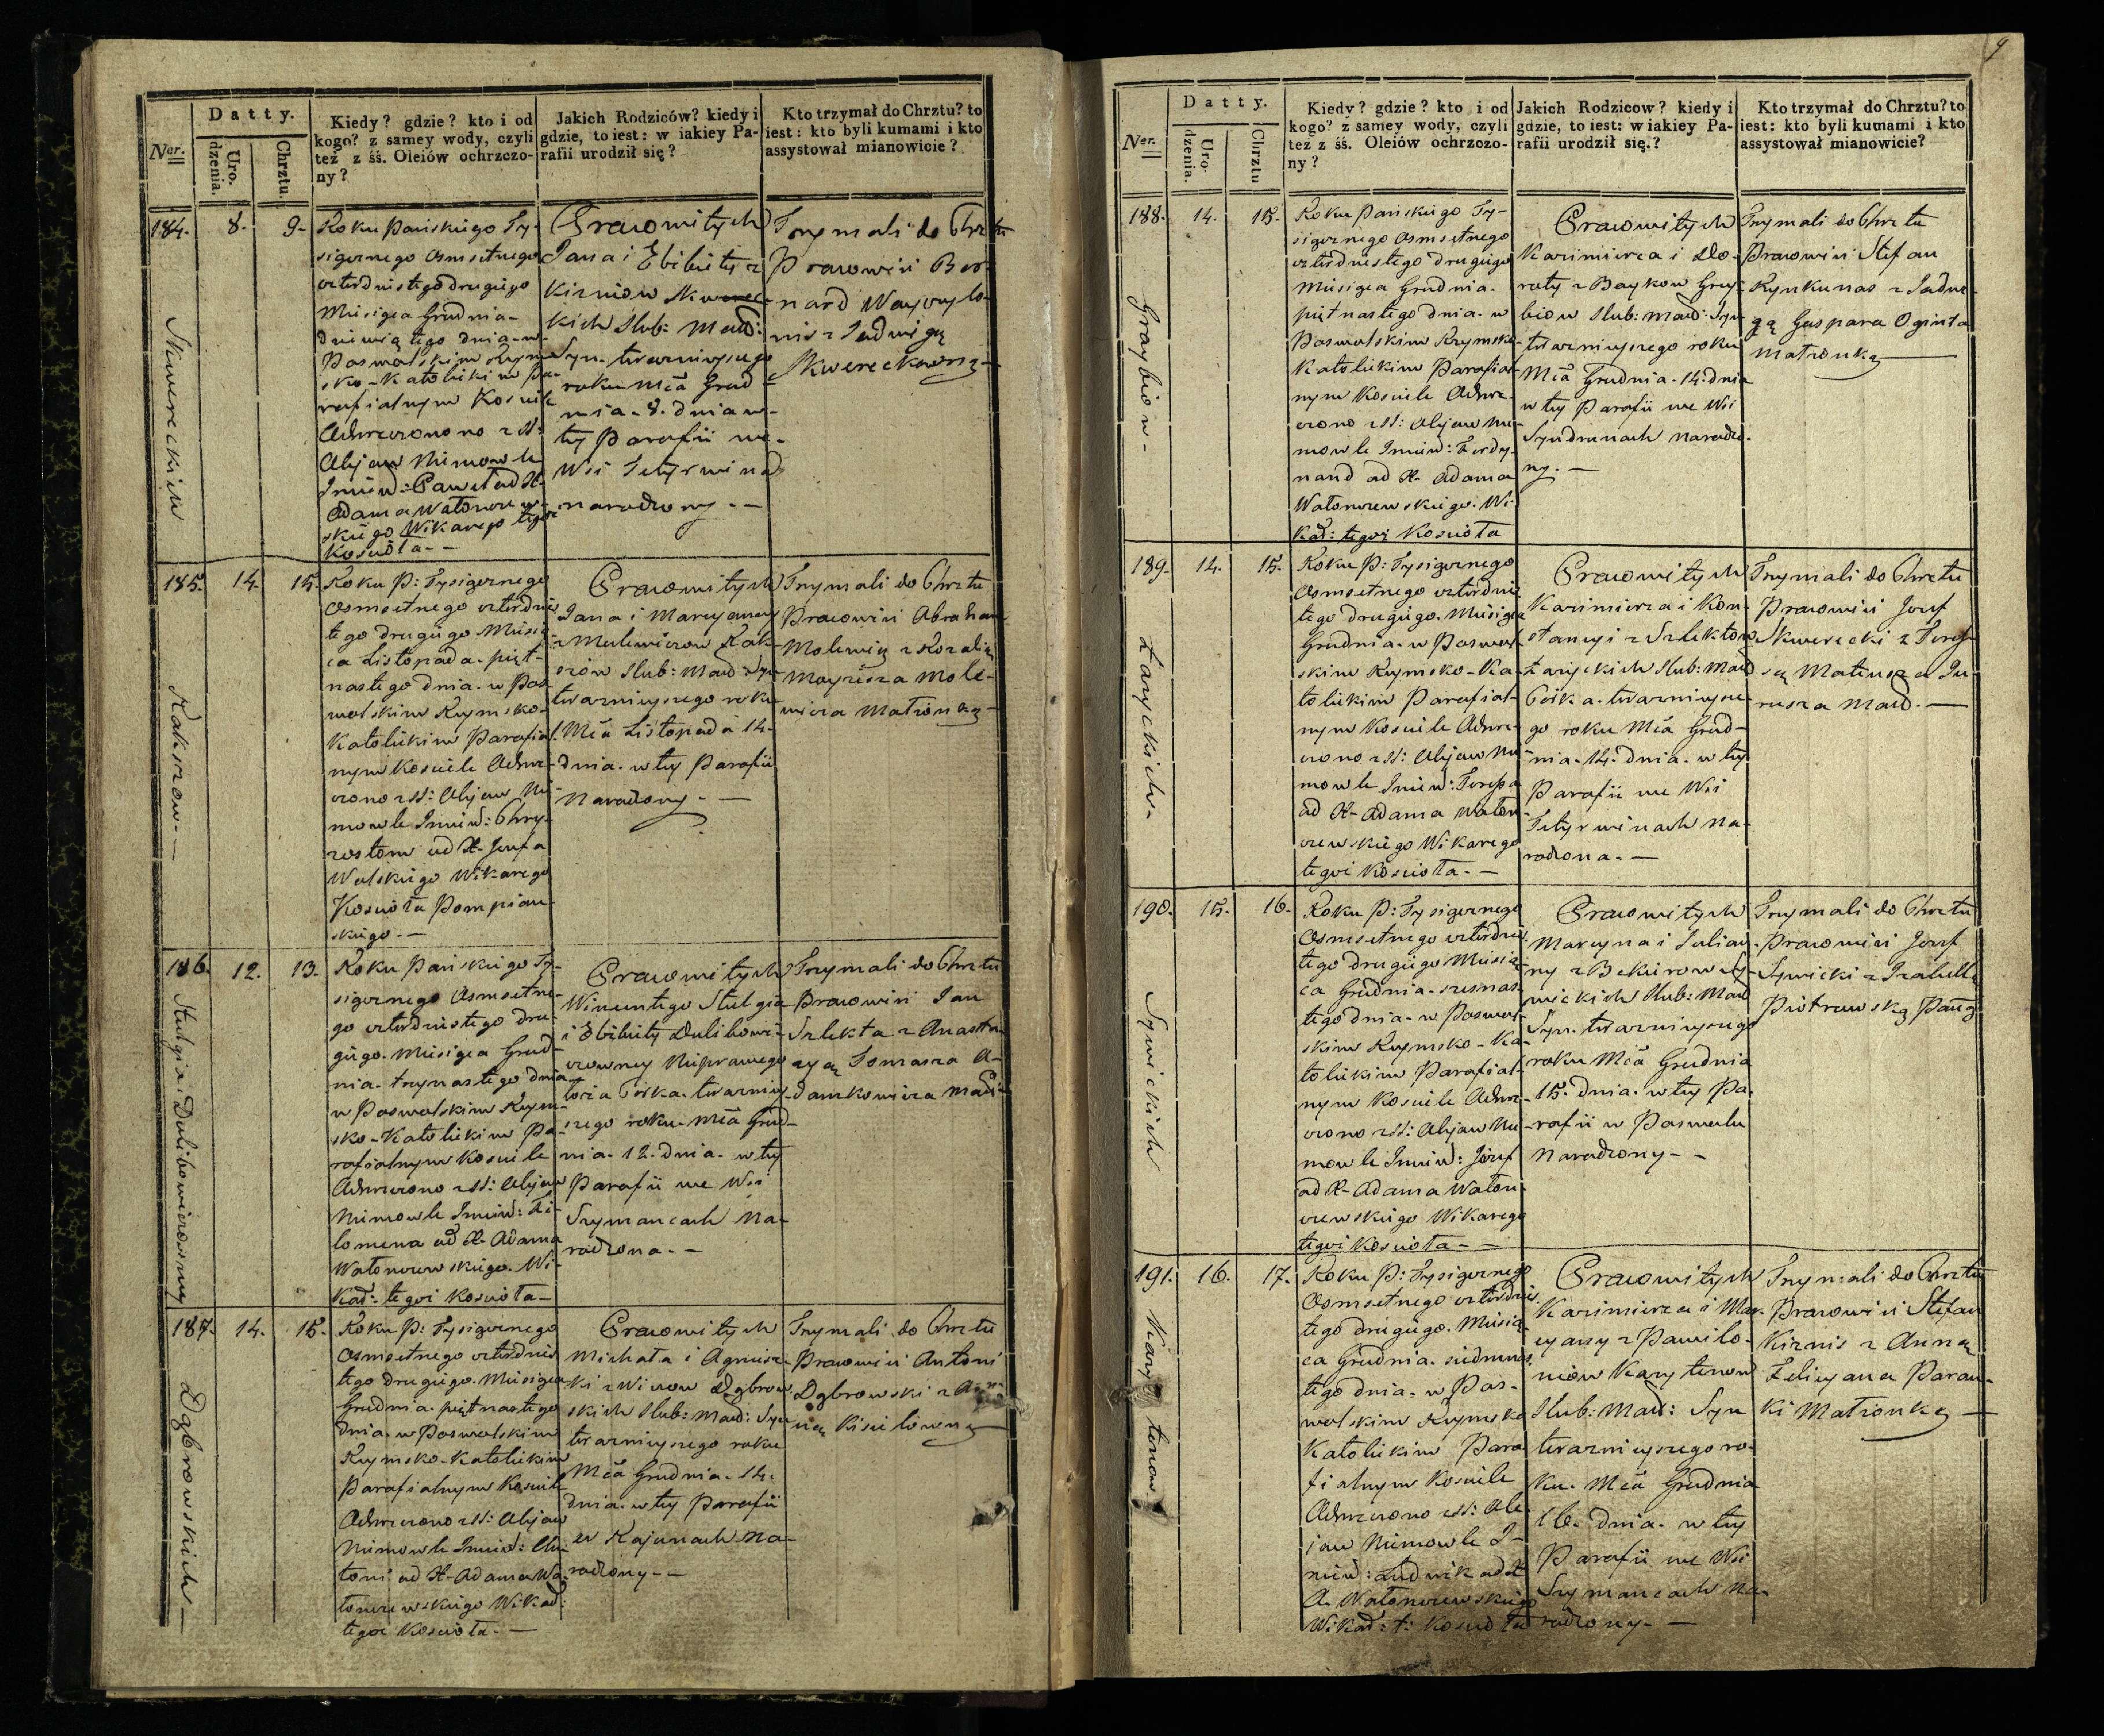 Datty.
Ner.
Uro-
dzenia.
Chrztu.
Kiedy? gdzie? kto i od
kogo? z samey wody, czyli
też z śś. Oleiów ochrzczo-
ny?
Jakich Rodziców? kiedy i
gdzie, to iest: w iakiey Pa-
rafii urodził się?
Kto trzymał do Chrztu? to
iest: kto byli kumami i kto
assystował mianowicie?
184. 8. 9.
Skwereckiw
Roku Pańskiego Ty-
siącznego Osmsetnego
czterdziestego drugiego
Miesiąca Grudnia-
dziewiątego dnia- w
Poswolskim Rzym-
sko-Katolickim Pa-
rafialnym Kosciele
Ochrzczonono z SS:
Olejow Niemowle
Imien: Paweł od X.
Adama Wałonczew-
skiego Wikarego tegoż
Koscioła- -
Pracowitych
Jana i Elżbiety z
Kirniow Skwerec-
kich Slub: Małż:
Syn. teraznieyszego
roku Mca Grud-
nia- 8. dnia w-
tey Parafii we-
Wsi Tetyrwinach
narodzony.-
Trzymali do Chrztu
Pracowici Ber-
nard
z Jadwigą
Skwereckowną-
185. 14. 15.
Roku P: Tysiącznego
Osmsetnego czterdzies-
tego drugiego Miesią-
ca Listopada. pięt-
nastego dnia. w Pos-
wolskim Rzymsko-
Katolickim Parafial-
nym Kosciele Ochrz-
czono z SS: Olejow Nie-
mowle Imien: Chry-
zostom od X. Jozefa
Wolskiego Wikarego
Kosciola Pompian-
skiego.-
Pracowitych
Jana i Maryanny
z Molewiczow
Slub: Małż: Syn
teraznieyszego roku
Mca Listopada 14.
dnia. w tey Parafii
Narodzony.-
Trzymali do Chrztu
Pracowici Abraham
Molewicz z Rozalią
Mole-
wicza Małżonką-
186. 12. 13.
Stulgia i Dulibowiczowney
Roku Pańskiego Ty-
siącznego Osmsetne-
go czterdziestego dru-
giego. Miesiąca Grud-
nia- trzynastego dnia
w Poswolskim Rzym-
sko-Katolickim Pa-
rafialnym Kosciele
Ochrzczono z SS: Olejow
Niemowle Imien: Fi-
lomena od X. Adama
Wałonczewskiego. Wi-
kar: tegoż Kosciola-
Pracowitych
Wincentego Stulgia
i Elżbiety Dulibowi-
czowney Nieprawego
łoża Corka. teraznie-
szego roku. Mca Grud-
nia- 12. dnia. w tey
Parafii we Wsi
Szymancach Na-
rodzona.-
Trzymali do Chrztu
Pracowici Jan
Szlekta z Anasta-
zyą Tomasza A-
damkowicza Małż-
187. 14. 15.
Dąbrowskich-
Roku P: Tysiącznego
Osmsetnego czterdzies-
tego drugiego. Miesiąca
Grudnia. piętnastego
dnia. w Poswolskim
Rzymsko-Katolickim
Parafialnym Kosciele
Ochrzczono z SS: Olejow
Niemowle Imien: An-
toni od X. Adama Wa-
łonczewskiego Wikar:
tegoż Kosciola.-
Pracowitych
Michała i Agniesz-
ki z Wiczow Dąbrow-
skich Slub: Małż: Syn
teraznieyszego roku
Mca Grudnia. 14.
dnia. w tey Parafii
w Kajunach Na-
rodzony--
Trzymali do Chrztu
Pracowici Antoni
Dąbrowski z An-
ną Kisielowną
9
Datty.
Ner.
Uro-
dzenia.
Chrztu
Kiedy? gdzie? kto i od
kogo? z samey wody, czyli
też z śś. Oleiów ochrzczo-
ny?
Jakich Rodzicow? kiedy i
gdzie, to iest: w iakiey Pa-
rafii urodził się.?
Kto trzymał do Chrztu? to
iest: kto byli kumami i kto
assystował mianowicie?
188. 14. 15.
Graybiow-
Roku Pańskiego Ty-
siącznego Osmsetnego
czterdziestego drugiego
Miesiąca Grudnia.
piętnastego dnia. w
Poswolskim Rzymsko
Katolickim Parafial-
nym Kosciele Ochrz-
czono z SS: Olejow Nie-
mowle Imien: Ferdy-
nand od X. Adama
Wałonczewskiego. Wi-
kar: tegoż Kosciola
Pracowitych
Kazimierza i Do-
roty z Baykow Gray-
biow Slub: Małż: Syn
teraznieyszego roku
Mca Grudnia. 14. dnia
w tey Parafii we Wsi
Narodzo-
ny.-
Trzymali do Chrztu
Pracowici Stefan
Rynkunas z Jadwi-
gą Gaspara Oginta
Małżonką
189. 14. 15.
Roku P: Tysiącznego
Osmsetnego czterdzies-
tego drugiego. Miesiąca
Grudnia. w Poswol-
skim Rzymsko-Ka-
tolickim Parafial-
nym Kosciele Ochrz-
czono z SS: Olejow Nie-
mowle Imien: Teressa
od X. Adama Wałon-
czewskiego Wikarego
tegoż Kosciola.-
Pracowitych
Kazimierza i Kon-
stancyi z Szlektow
Slub: Małż
Corka. teraznieysze-
go roku Mca Grud-
nia. 14. dnia. w tey
Parafii we Wsi
Tetyrwinach Na-
rodzona.-
Trzymali do Chrztu
Pracowici Jozef
Skwerecki z Teres-
są Mateusza Ju-
rusza Małż.-
190. 15. 16.
Sywickich
Roku P: Tysiącznego
Osmsetnego czterdzies-
tego drugiego Miesią-
ca Grudnia. szesnas-
tego dnia. w Poswol-
skim Rzymsko-Ka-
tolickim Parafial-
nym Kosciele Ochrz-
czono z SS: Olejow Nie-
mowle Imien: Jozef
od X. Adama Wałon-
czewskiego Wikarego
tegoż Kosciola--
Pracowitych
Marcyna i Julian-
ny z Bekierow Sy-
wickich Slub: Małż
Syn. teraznieyszego
roku Mca Grudnia
15. dnia. w tey Pa-
rafii w Poswolu
Narodzony--
Trzymali do Chrztu
Pracowici Jozef
Sywicki z Izabellą
Piotrowską Panną
191. 16. 17.
Karytenow
Roku P: Tysiącznego
Osmsetnego czterdzies-
tego drugiego. Miesią-
ca Grudnia. siedmnas-
tego dnia. w Pos-
wolskim Rzymsko
Katolickim Para-
fialnym Kosciele
Ochrzczono z SS: Ole-
jow Niemowle I-
mien: Ludwik od X
A. Wałonczewskiego
Wikar: t: Kosciola
Pracowitych
Kazimierza i Mar-
cyanny z Pawilo-
niow Karytenow
Slub: Małż: Syn
teraznieyszego ro-
ku. Mca Grudnia
16. dnia. w tey
Parafii we Wsi
Szymancach Na-
rodzony.-
Trzymali do Chrztu
Pracowici Stefan
Kirnis z Anną
Felicyana Paran-
ki Małżonką-